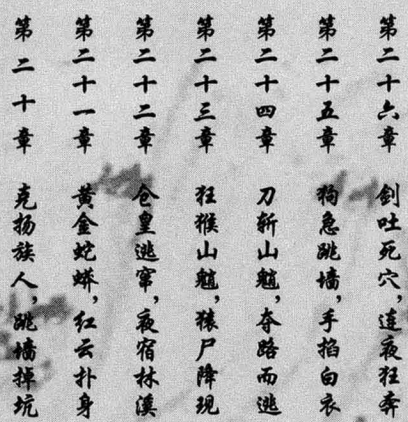 第二十六章 剑吐死穴，连夜狂奔
第二十五章 狗急跳墙，手掐白衣
第二十四章 刀斩山魈，夺路而逃
第二十三章 狂猴山魈，猿尸降现
第二十二章 仓皇逃窜，夜宿林溪
第二十一章 黄金蛇蟒，红云扑身
第二十章 克扬族人，跳墙掉坑